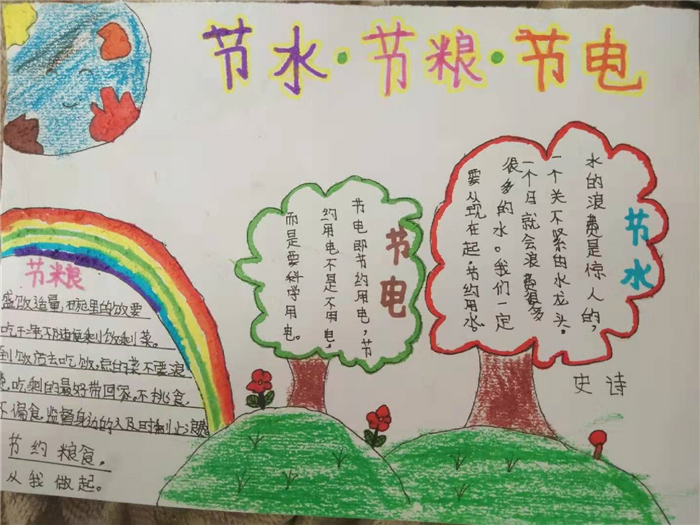 节水·节粮·节电
节粮
盛饭适量,碗里的饭要
吃干净不随便剩饭剩菜。
到饭店去吃饭,点的菜不要浪
费,吃剩的最好带回家。不挑食,
不偏食,监督身边的人及时制止浪费
节约粮食,
从我做起。
节电
节电即节约用电,节
约用电不是不用电,
而是要科学用电。
节水
水的浪费是惊人的,
一个关不紧的水龙头,
一个月就会浪费很多
很多的水。我们一定
要从现在起,节约用水。
史诗